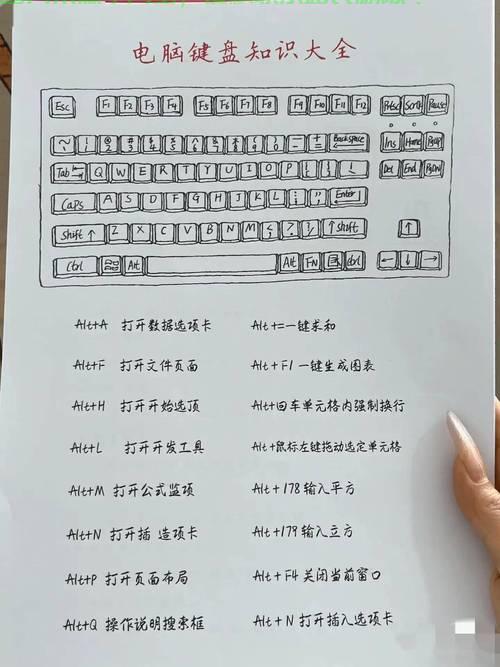 电脑键盘知识大全
Esc F1 F2 F3 F4 F5 F6 F7 F8 F9 F10 F11 F12 Prtsc Scroll Pause
Backspace Ins Home PgUp
Tab Q W E R T Y U I O P Del End PgDn
Caps A S D F G H J K L Enter
Shift ↑ Z X C V B N M ↑ Shift ↑
Ctrl Alt Alt FN Ctrl ← ↓ →
Alt+A 打开数据选项卡 Alt+=一键求和
Alt+F 打开文件页面 Alt+F1 一键生成图表
Alt+H 打开开始选顶 Alt+回车单元格内强制换行
Alt+L 打开开发工具 Alt+鼠标左键拖动选定单元格
Alt+M 打开公式监项 Alt+178输入平方
Alt+N 打开插 造项卡 Alt+179输入立方
Alt+P 打开页面布局 Alt+F4 关闭当前窗口
Alt+Q 操作说明搜索框 Alt+N打开插入选项卡